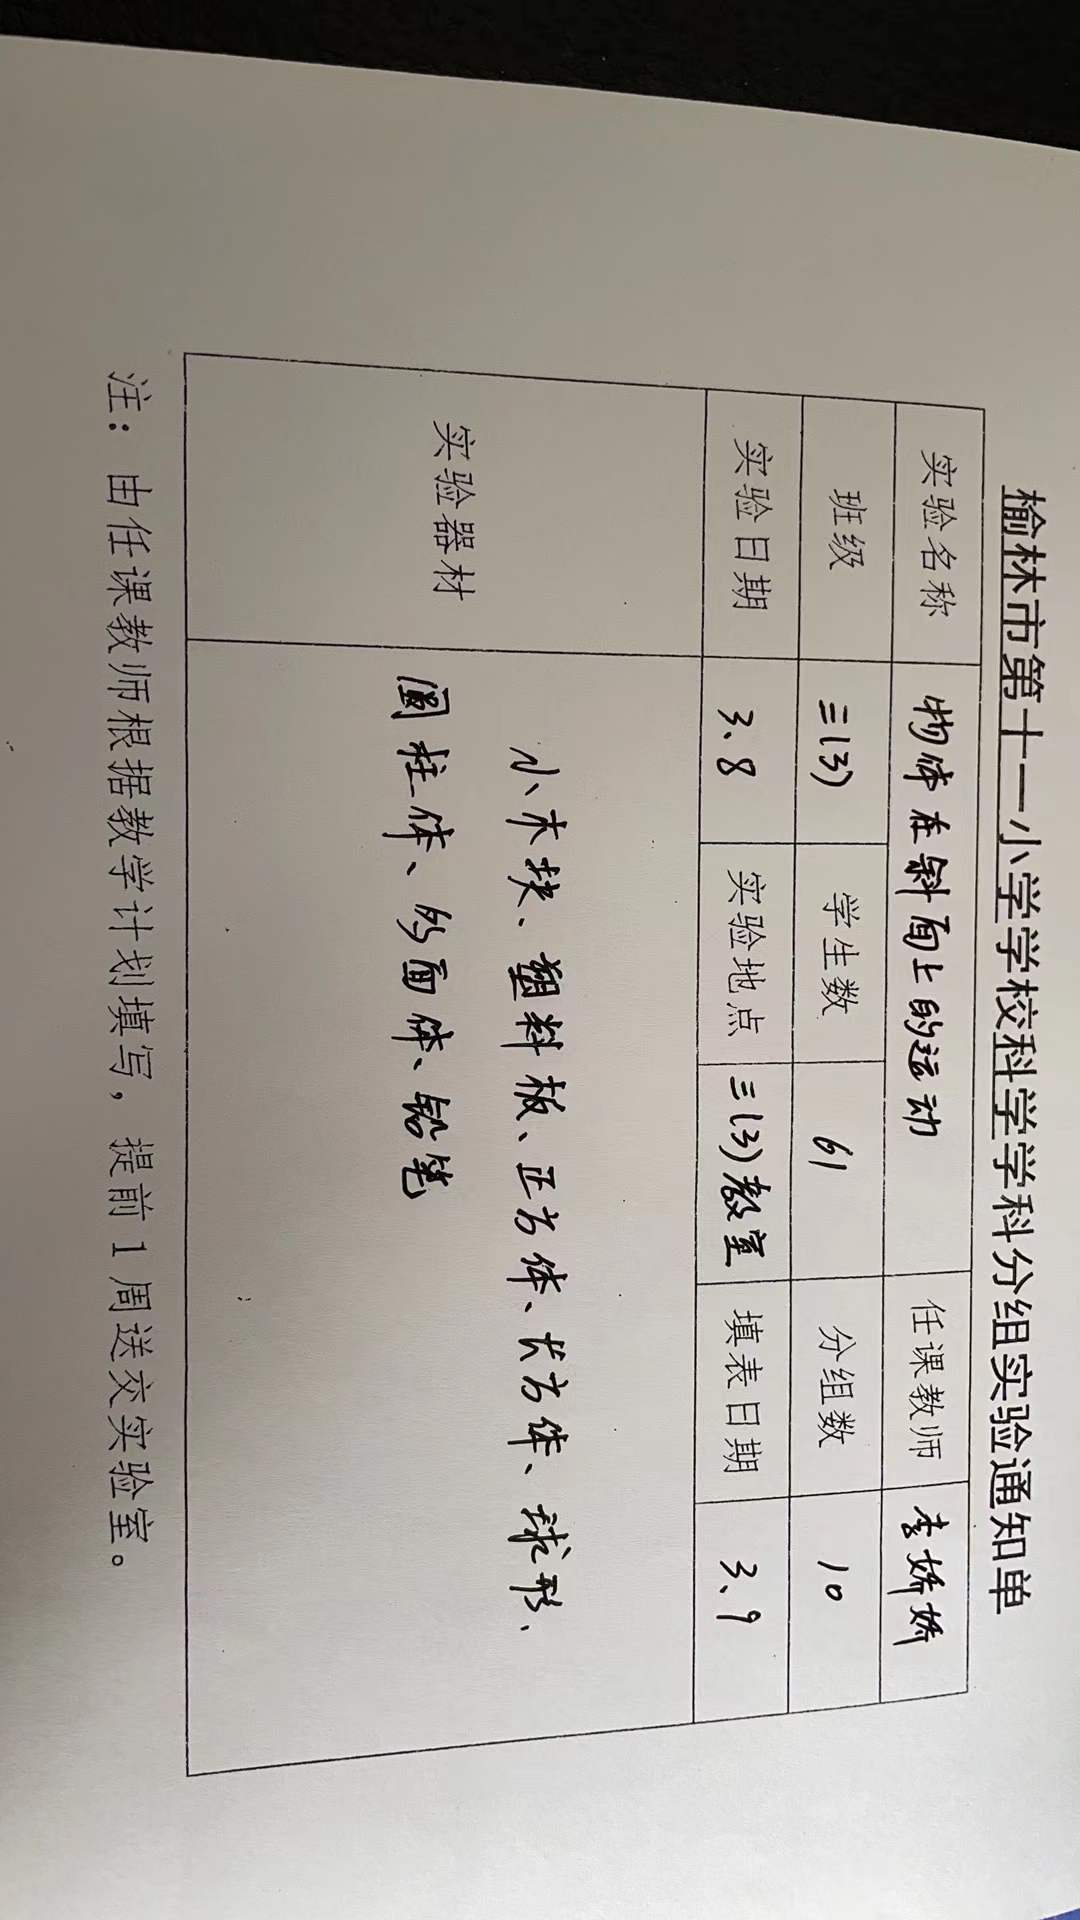 榆林市第十一小学学校科学学科分组实验通知单
实验名称 物体在斜面上的运动 任课教师 李娇娇
班级 三(3) 学生数 61 分组数 10
实验日期 3、8 实验地点 三(3)教室 填表日期 3、9
实验器材 小木块、塑料板、正方体、长方体、球形、
圆柱体、多面体、铅笔
注：由任课教师根据教学计划填写，提前1周送交实验室。